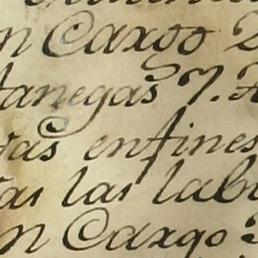 n Cargo
fanegas 7.
ras en fines
as las lab
n Cargo